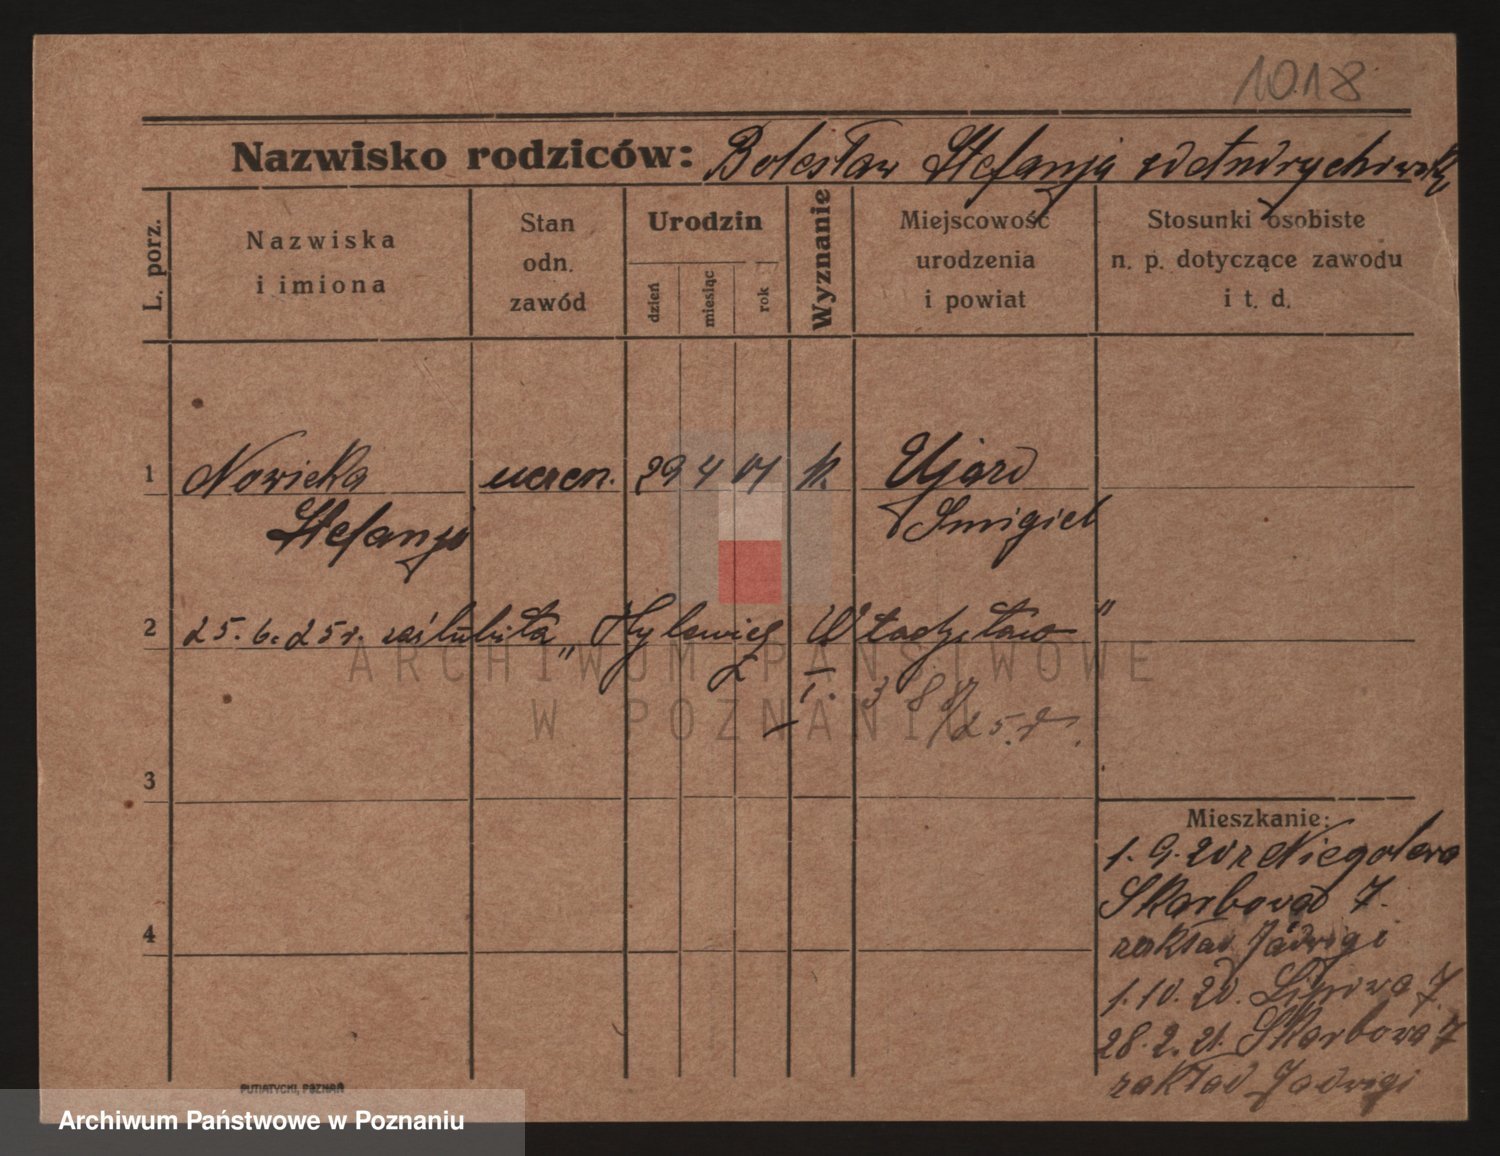 1018
Nazwisko rodziców: Bolesław Stefanja
L. porz.
Nazwiska
i imiona
Stan
odn.
zawód
Urodzin
dzień
miesiąc
rok
Wyznanie
Miejscowość
urodzenia
i powiat
Stosunki osobiste
n. p. dotyczące zawodu
i t. d.
1 Nowicka uczen. 29 4 01 k. Ujazd
Stefanja Smigiel
2 25. 6. 25 r. zaślubiła „Hylewicz Władysław”
I. 388/25.
3
Mieszkanie:
1. 9. 20 r Niegolewo
Skarbowa 7.
4
zakład Jadwigi
1. 10. 20. Lipowa 7.
28. 2. 21. Skarbowa 7
zakład Jadwigi
PUTIATYCKI, POZNAŃ
ARCHIWUM PAŃSTWOWE
W POZNANIU
Archiwum Państwowe w Poznaniu